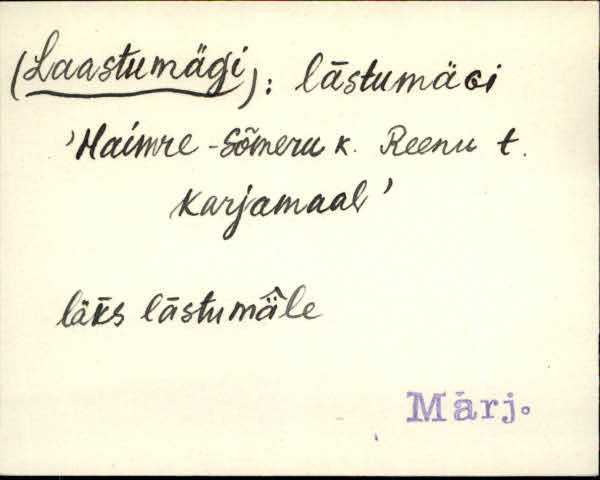 (Laastumägi): lāstumäGi
'Haimre-Sõmeru k. Reenu t.
karjamaal'
läks lāstumä̂le
Märj.